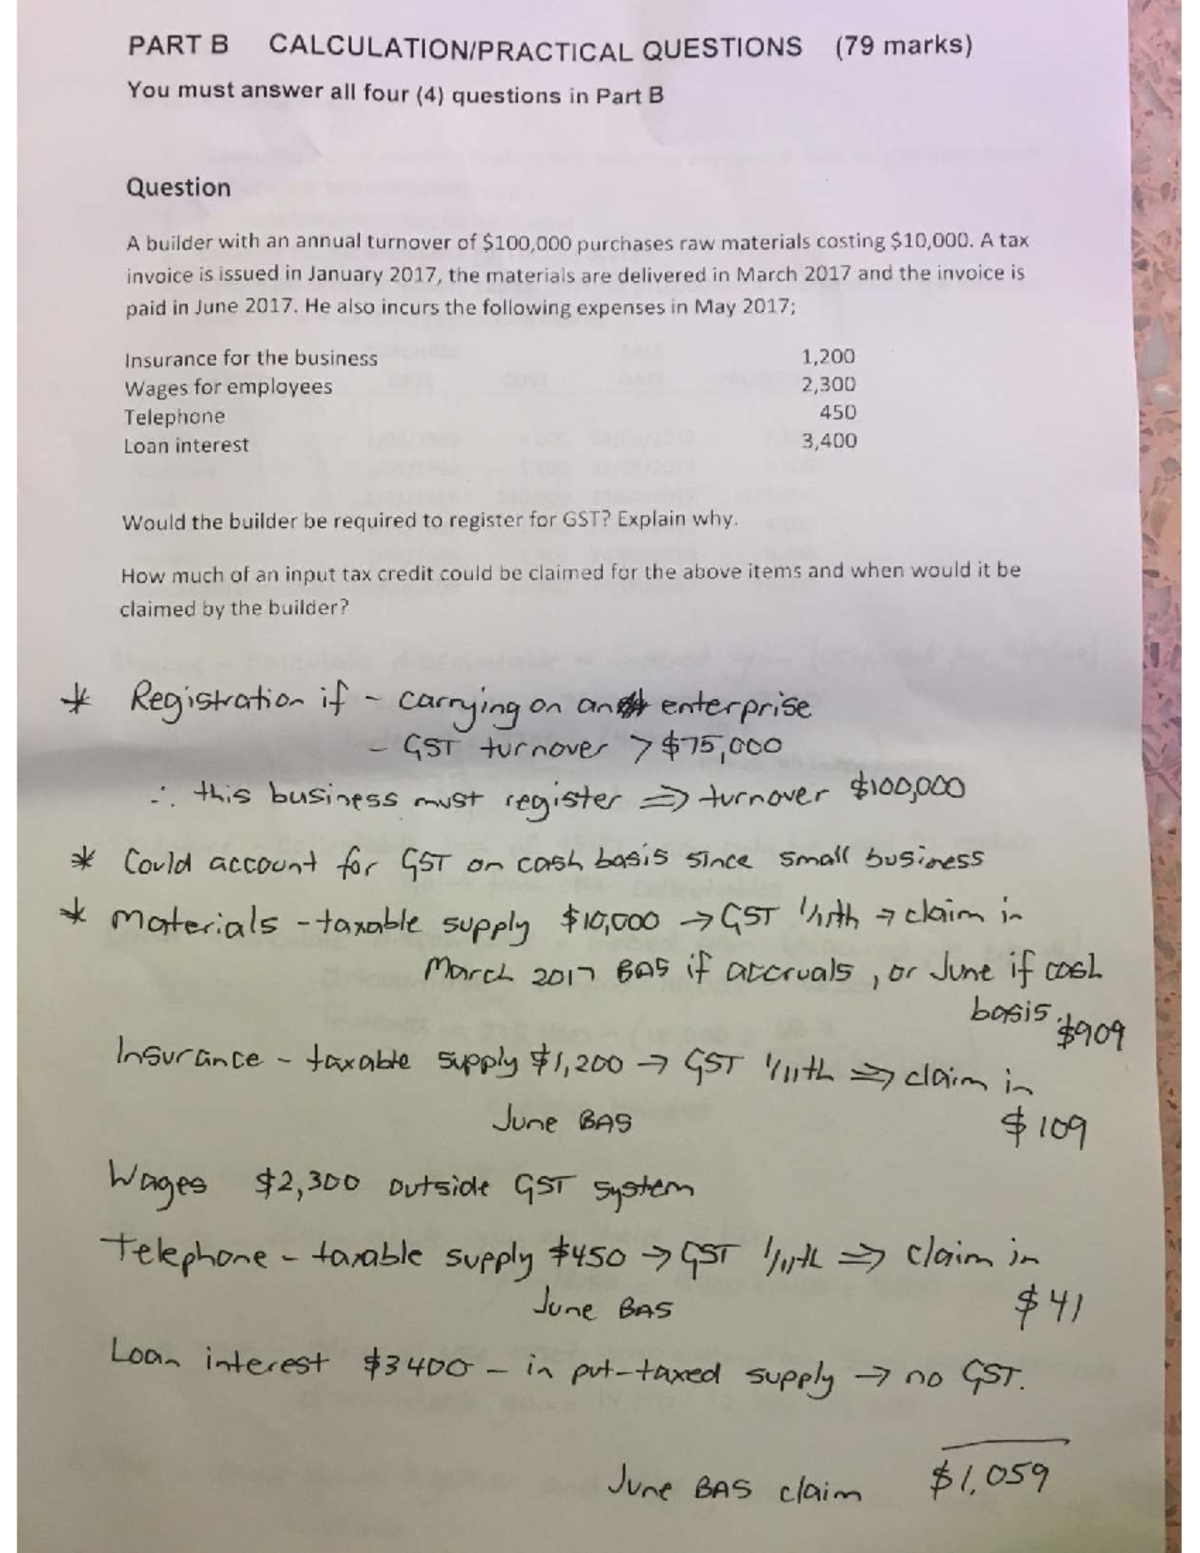 PART B CALCULATION/PRACTICAL QUESTIONS (79 marks)
You must answer all four (4) questions in Part B
Question
A builder with an annual turnover of $100,000 purchases raw materials costing $10,000. A tax
invoice is issued in January 2017, the materials are delivered in March 2017 and the invoice is
paid in June 2017. He also incurs the following expenses in May 2017;
Insurance for the business 1,200
Wages for employees 2,300
Telephone 450
Loan interest 3,400
Would the builder be required to register for GST? Explain why.
How much of an input tax credit could be claimed for the above items and when would it be
claimed by the builder?
* Registration if - carrying on an enterprise
- GST turnover > $75,000
∴ this business must register ⇒ turnover $100,000
* Could account for GST on cash basis since small business
* Materials - taxable supply $10,000 → GST 1/11th → claim in
March 2017 BAS if accruals, or June if cash
basis. $909
Insurance - taxable supply $1,200 → GST 1/11th ⇒ claim in
June BAS $109
Wages $2,300 outside GST system
Telephone - taxable supply $450 → GST 1/11th ⇒ claim in
June BAS $41
Loan interest $3400 - in put-taxed supply → no GST.
June BAS claim $1,059